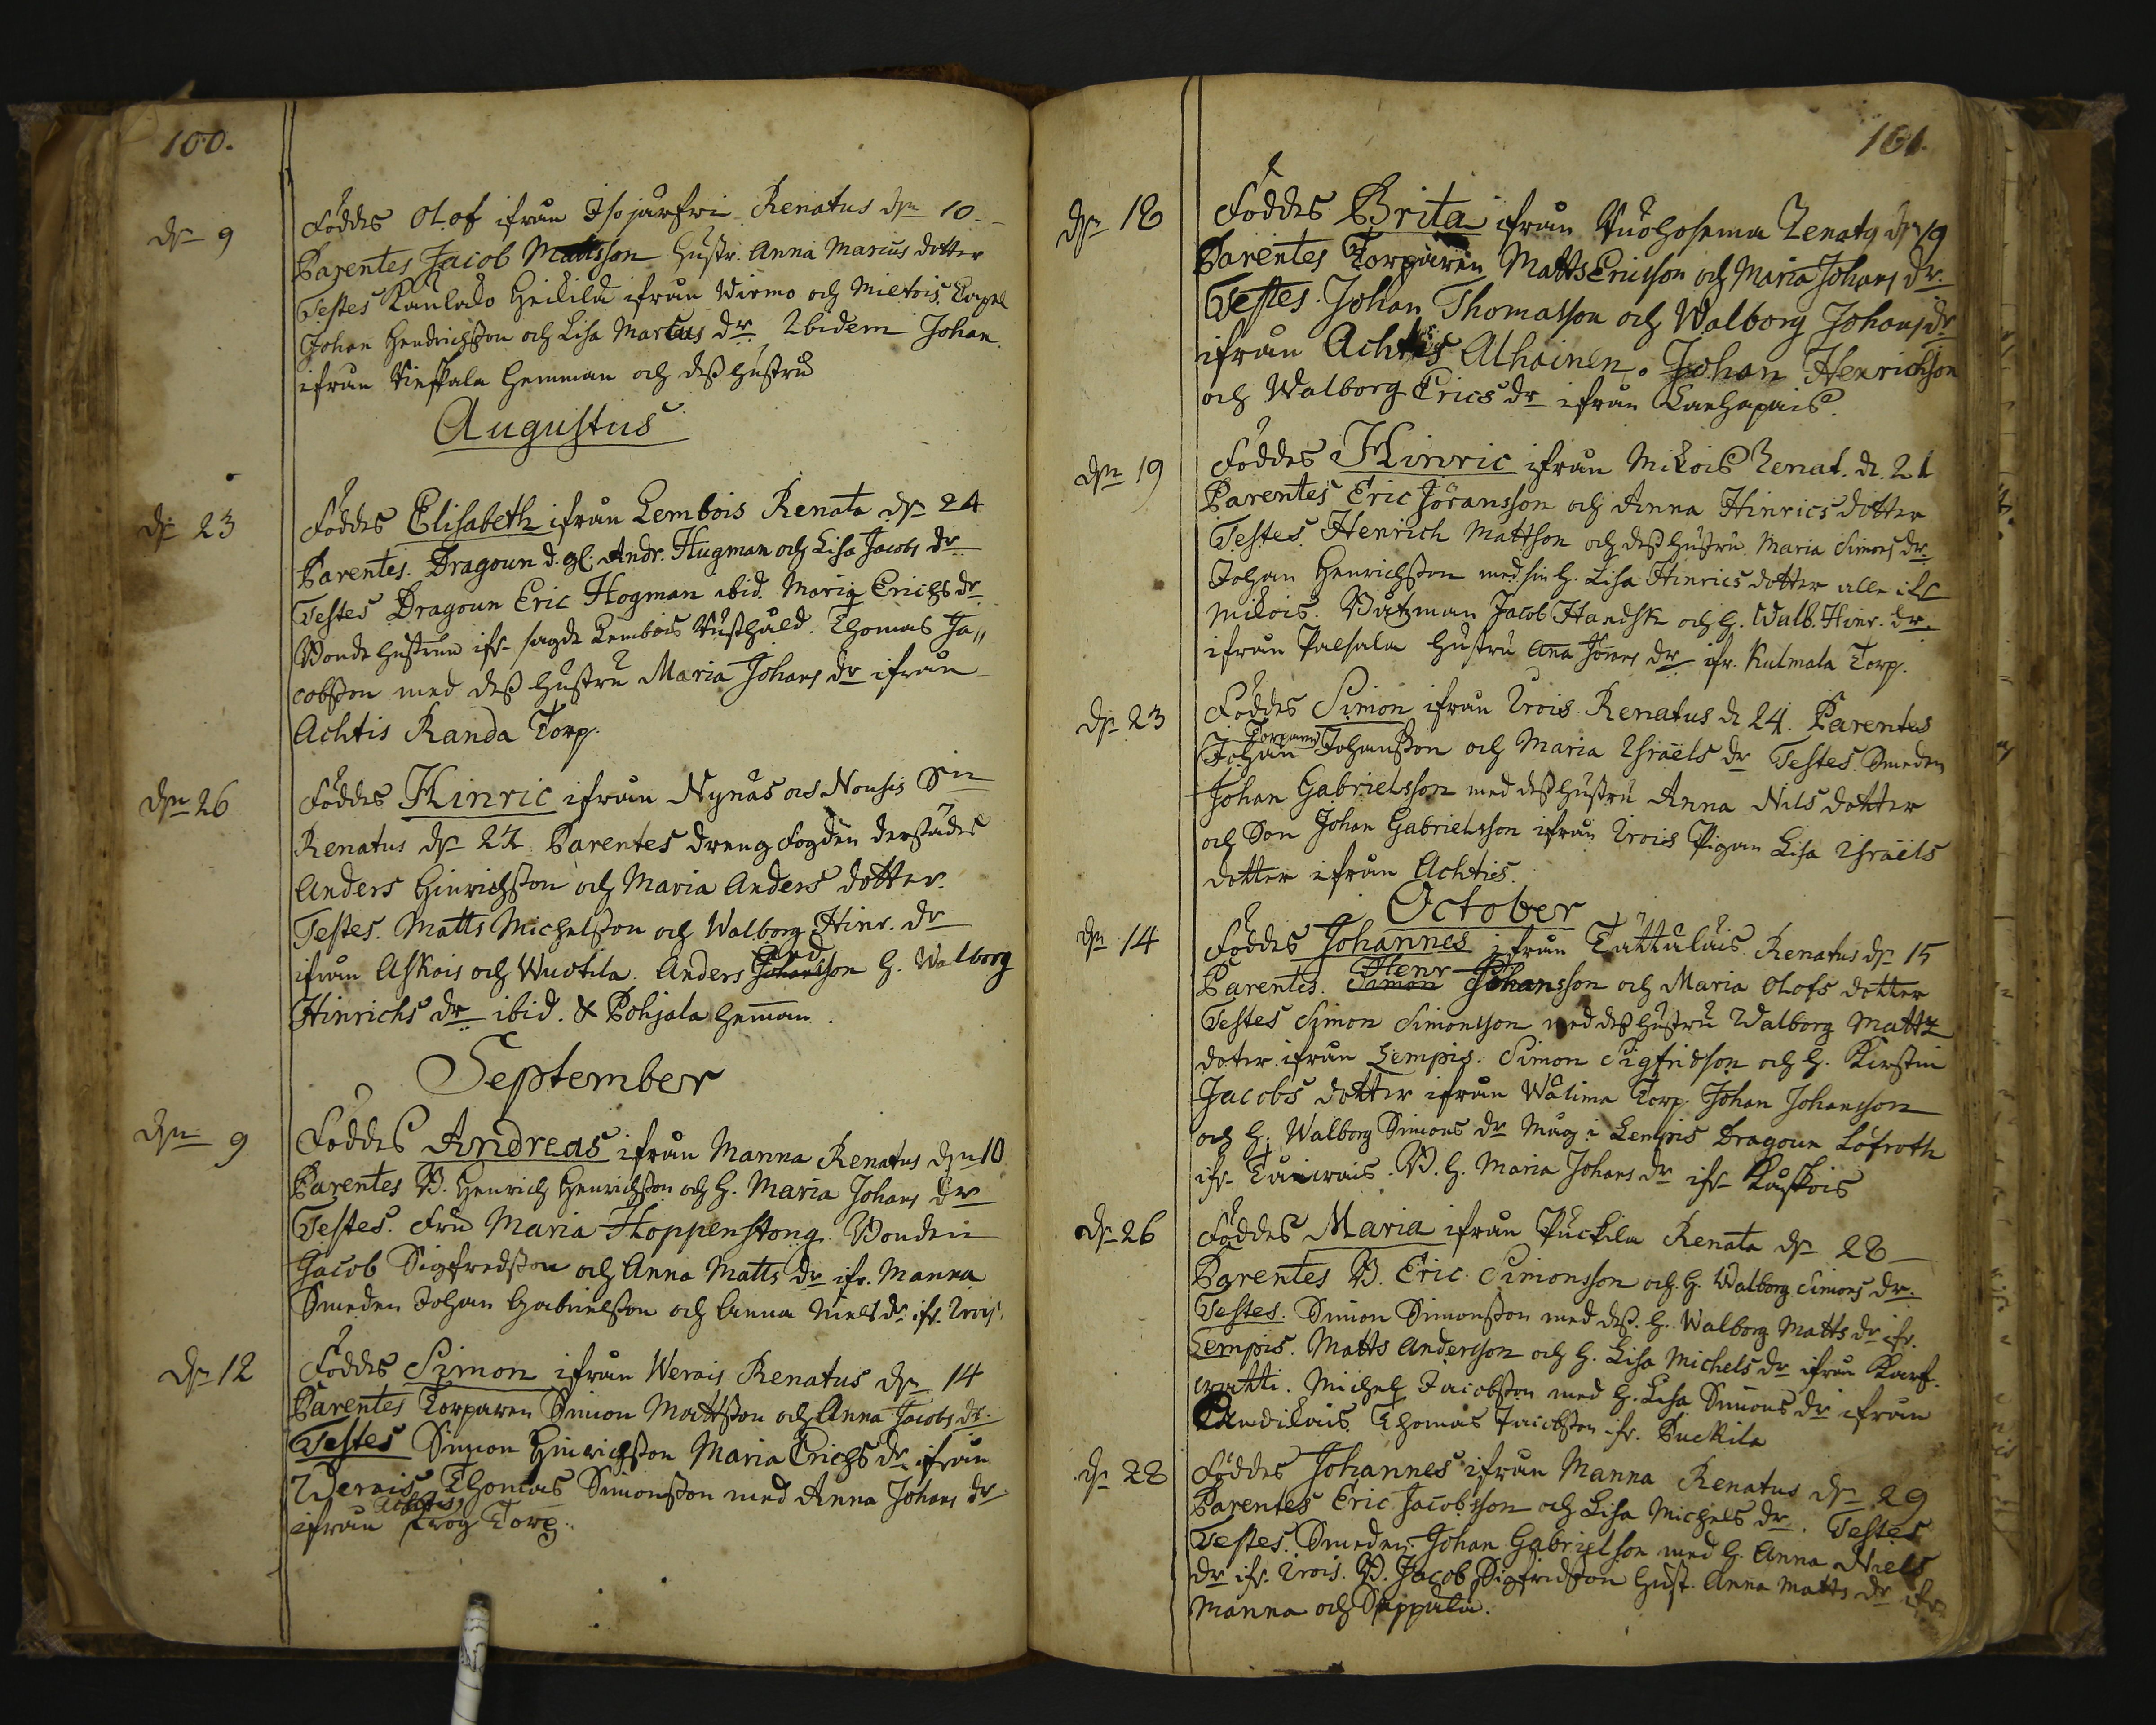 100.
dn 9
Föddes Olof ifrån Isojärfvi Renatus dn 10
Parentes Jacob Mattsson Hustr. Anna Marcus dotter
Testes Heickilä ifrån Wirmo och Mietois Capel
Johan Hendrichsson och Lisa Marcus dr Ibidem Johan
ifrån Hemman och dess hustru
Augustus
dn 23
Föddes Elisabeth ifrån Lembois Renata dn 24
Parentes. Dragoun Andr. Hugman och Lisa Jacobs dr
Testes Dragoun Eric Hogman ibid. Maria Erichs dr
Bonde hustrun ifr. sagde Lembois Rusthåld. Thomas Ja„
cobsson med dess hustru Maria Johans dr ifrån
Achtis Randa Torp.
dn 26
Föddes Hinric ifrån Nynäs Nousis Sn
Renatus dn 27. Parentes drengfogden derstädes
Anders Hinrichsson och Maria Anders dotter.
Testes. Matts Michelsson och Walborg Hinr. dr
And
ifrån Askois och Wuotila. Anders Johansson H. Walborg
Hinrichs dr ibid. & Pohjala Hemman.
September
dn 9
Föddes Andreas ifrån Manna Renatus dn 10
Parentes B. Henrich Henrichsson och H. Maria Johans dr
Testes. Fru Maria Hoppenstong. Bonden
Jacob Sigfredsson och Anna Matts dr ifr. Manna
Smeden Johan Gabrielsson och Anna Niels dr ifr. Irois.
dn 12
Föddes Simon ifrån Werais Renatus dn 14
Parentes Torparen Simon Mattsson och Anna Jacobs dr.
Testes Simon Hinrichsson Maria Erichs dr ifrån
Werais Thomas Simonsson med Anna Johans dr
Achtis
ifrån Krog Torp.
101.
dn 18
Föddes Brita ifrån Renata dn 19
Parentes Torparen Matts Ericsson och Maria Johans dr.
Testes. Johan Thomasson och Walborg Johans dr
ifrån Achtis Alhainen. Johan Henrichson
och Walborg Erics dr ifrån
dn 19
Föddes Hinric ifrån Mikois Renat. d. 21
Parentes Eric Jöransson och Anna Hinrics dotter
Testes. Henrich Mattson och dess hustru Maria Simons dr
Johan Henrichsson med sin H. Lisa Hinrics dotter alle ifr
Mikois. Båtzman Jacob Handsk och H. Walb. Hinr. dr.
ifrån Palsala hustru Anna Jöns dr ifr. Kulmala Torp.
dn 23
Föddes Simon ifrån Irois Renatus d 24. Parentes
Torparen
Johan Johansson och Maria Israels dr Testes. Smeden
Johan Gabrielsson med dess hustru Anna Nils dotter
och Son Johan Gabrielsson ifrån Irois Pigan Lisa Israels
dotter ifrån Achtis.
October
dn 14
Föddes Johannes ifrån Tattulais Renatus dn 15
Henr
Parentes. Simon Johansson och Maria Olofs dotter
Testes Simon Simonsson med dess hustru Walborg Matts
doter ifrån Lempis. Simon Sigfridson och H. Kirstin
Jacobs dotter ifrån Wälima Torp. Johan Johansson
och H. Walborg Simons dr Måg i Lempis Dragoun Löfroth
ifr. Tueirais. B. H. Maria Johans dr ifr. Kåskois
dn 26
Föddes Maria ifrån Puckila Renata dn 28
Parentes B. Eric Simonsson och H. Walborg Simons dr.
Testes. Simon Simonsson med dess H. Walborg Matts dr ifr.
Lempis. Matts Andersson och H. Lisa Michels dr ifrån Karf„
watti. Michel Jacobsson med H. Lisa Simons dr ifrån
Thomas Jacobsson ifr. Puckila
dn 28
Föddes Johannes ifrån Manna Renatus dn 29
Parentes Eric Jacobsson och Lisa Michels dr. Testes
Testes. Smeden Johan Gabrielson med H. Anna Niels
dr ifr. Irois. B. Jacob Sigfridsson Hust. Anna Matts dr ifr
Manna och Seppälä.